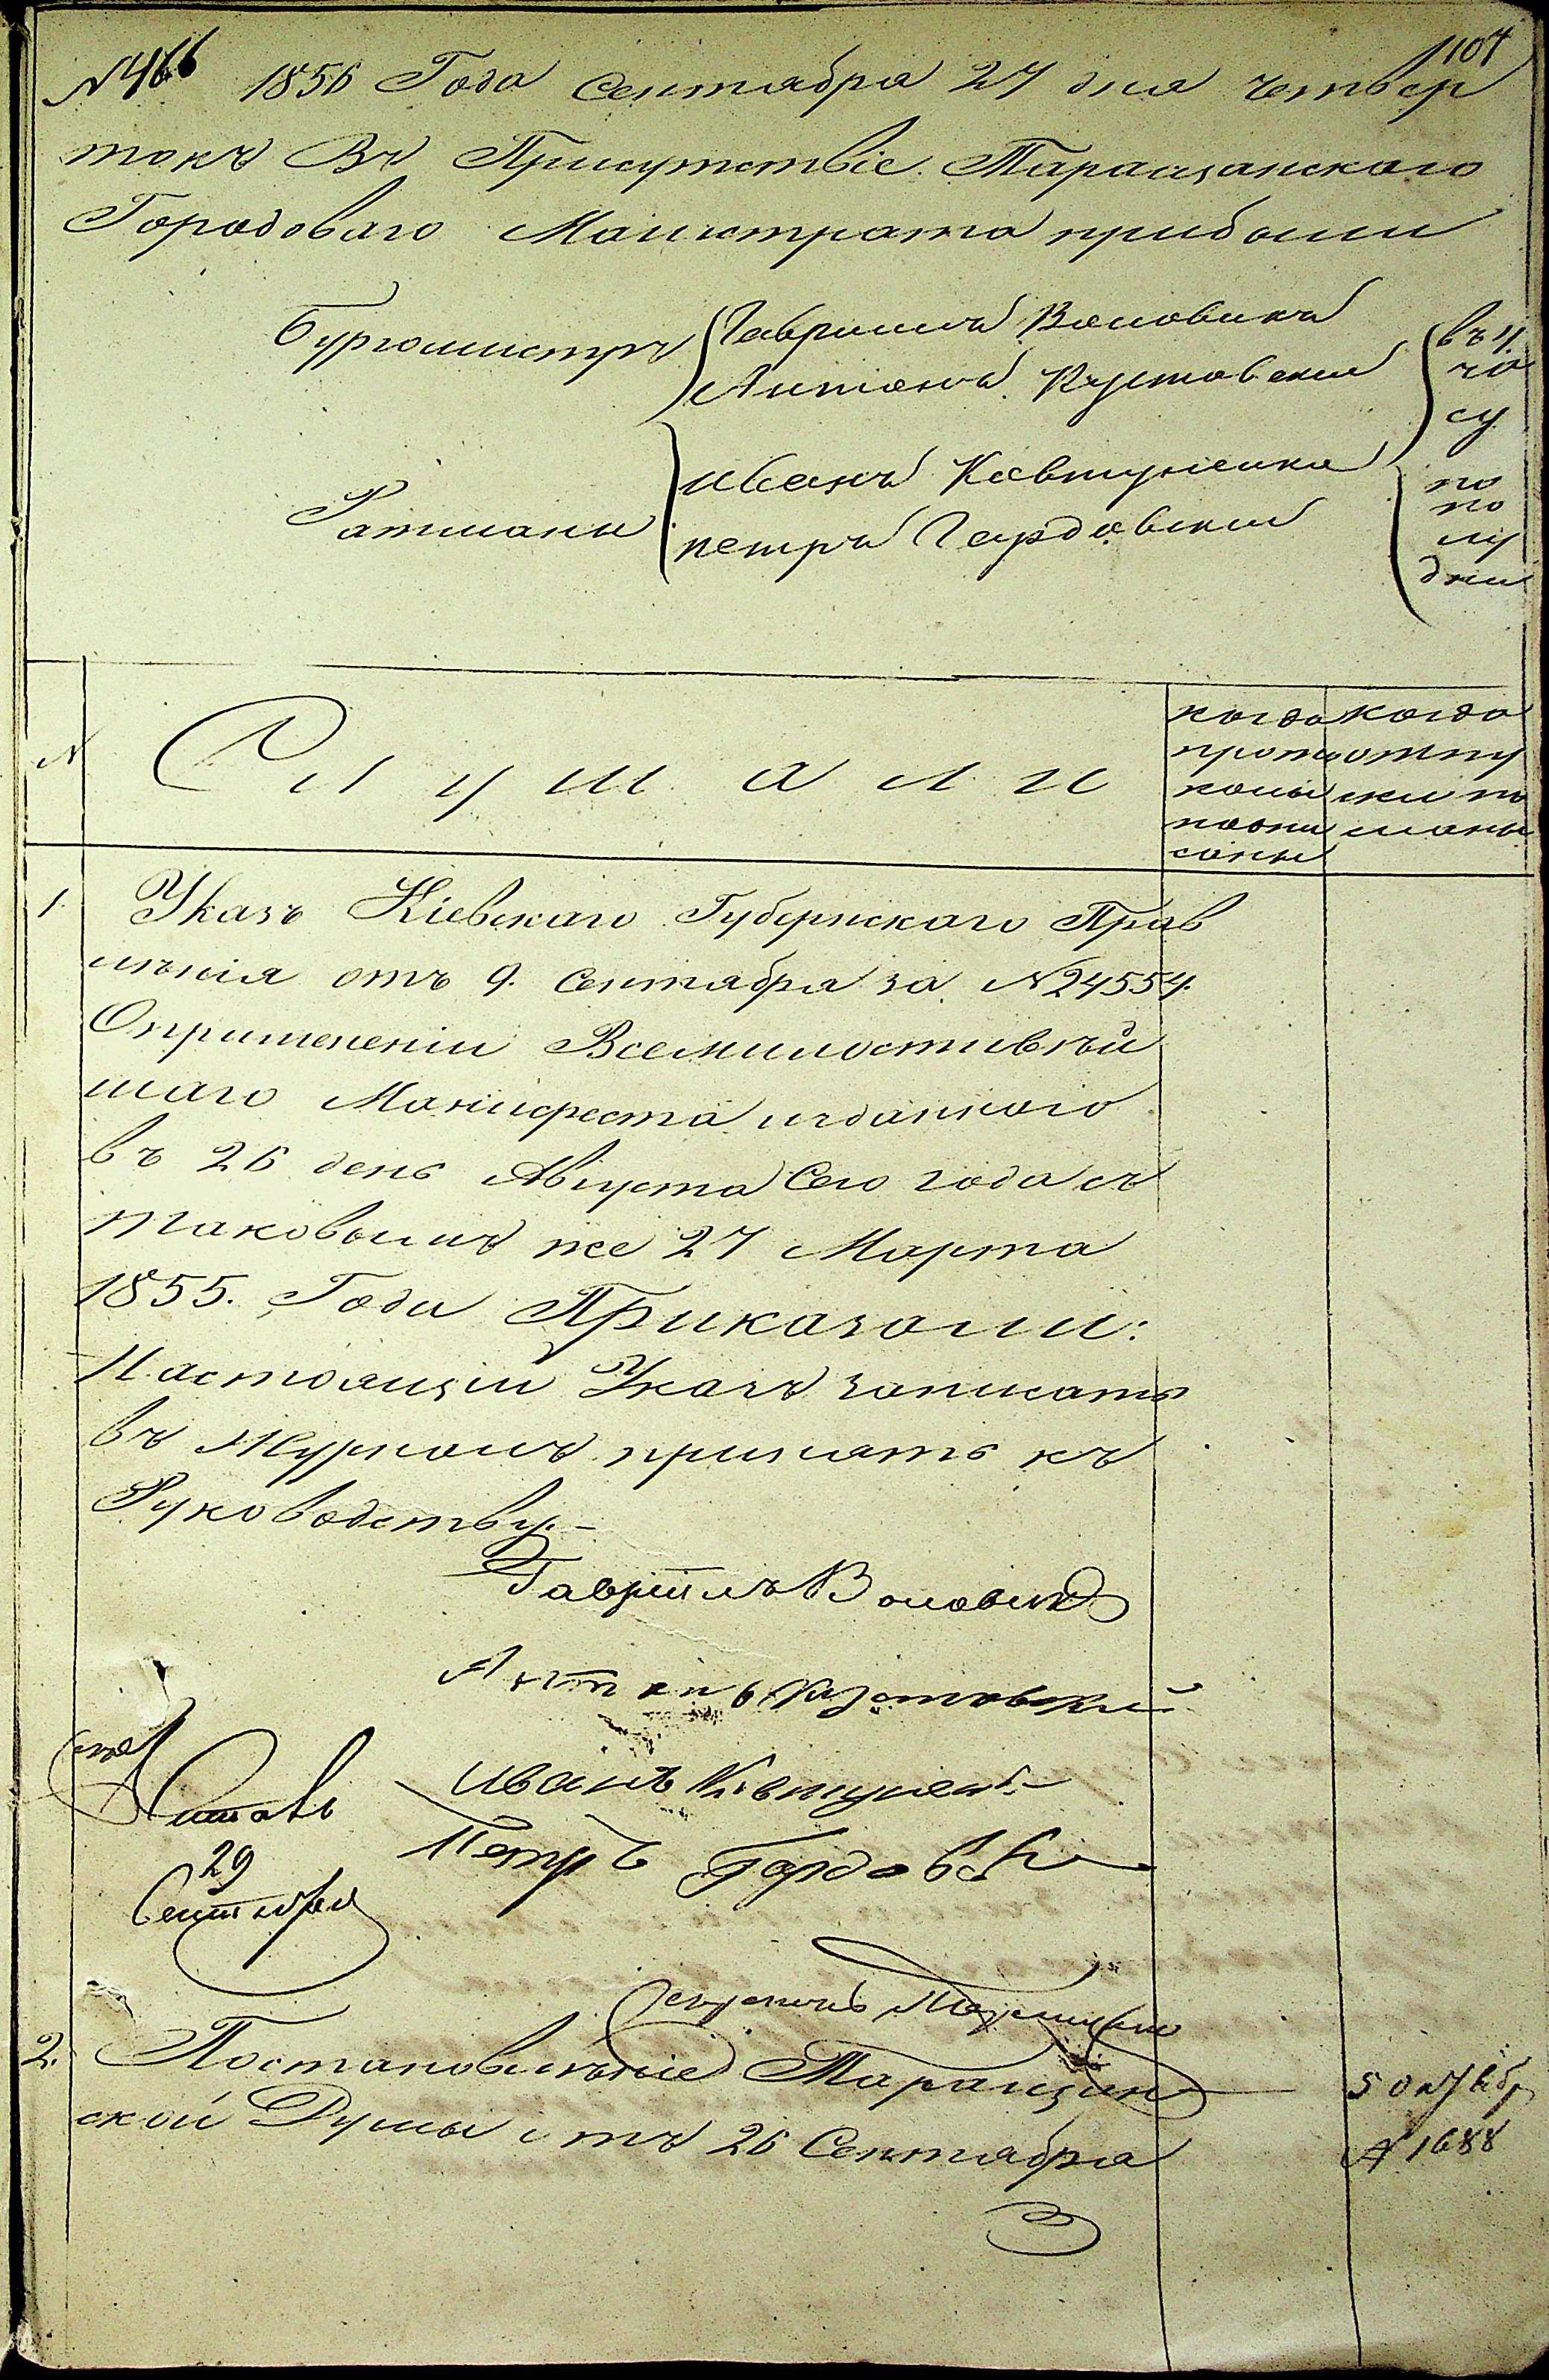 № 466 1856 Года Сентября 27 дня четвер
107
токъ Въ Присутствіе Таращанскаго
Городоваго Магистрата прибыли
Бургомистръ Гаврiилъ Воловикъ
Антонъ Кустовскій
Ратманы Иванъ Ковтуненко
Петръ Гардовскій
въ 4
ча
су
по
по
лу
дни
№
Слушали
когда
прото
колы
подпи
саны
когда
отпу
ски по
сланы
1. Указъ Кіевскаго Губернскаго Прав
ленія отъ 9. Сентября за № 24554.
О примененіи Всемилостивѣй
шаго Манифеста изданного
въ 26 день Августа Сего года съ
таковымъ же 27 Марта
1855. Года Приказали:
Настоящій Указъ записать
въ Журналъ принять къ
Руководству.-
Гаврііилъ Воловикъ
Антонъ Кустовскій
Иванъ Ковтуненко
Петръ Гардовск
29
Сентября
2. Постановленіе Таращин
ской Думы отъ 26 Сентября
5 октябр
№ 1688